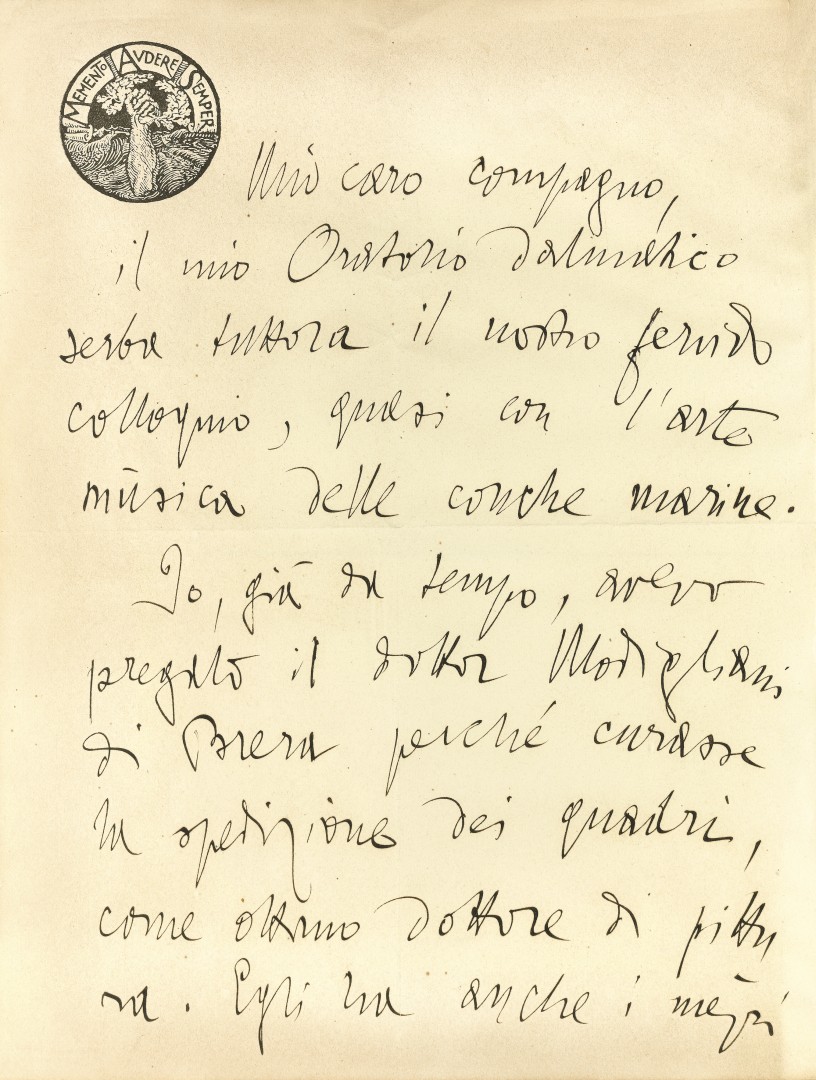 MEMENTO AVDERE SEMPER
Mio caro compagno,
il mio Oratorio dalmatico
serba tuttora il nostro fervido
colloquio, quasi con l'arte
mùsica delle conche marine.
Io, già da tempo, avevo
pregato il dottor Modigliani
di Brera perché curasse
la spedizione dei quadri,
come ottimo dottore di pittu
ra. Egli ha anche i mezzi